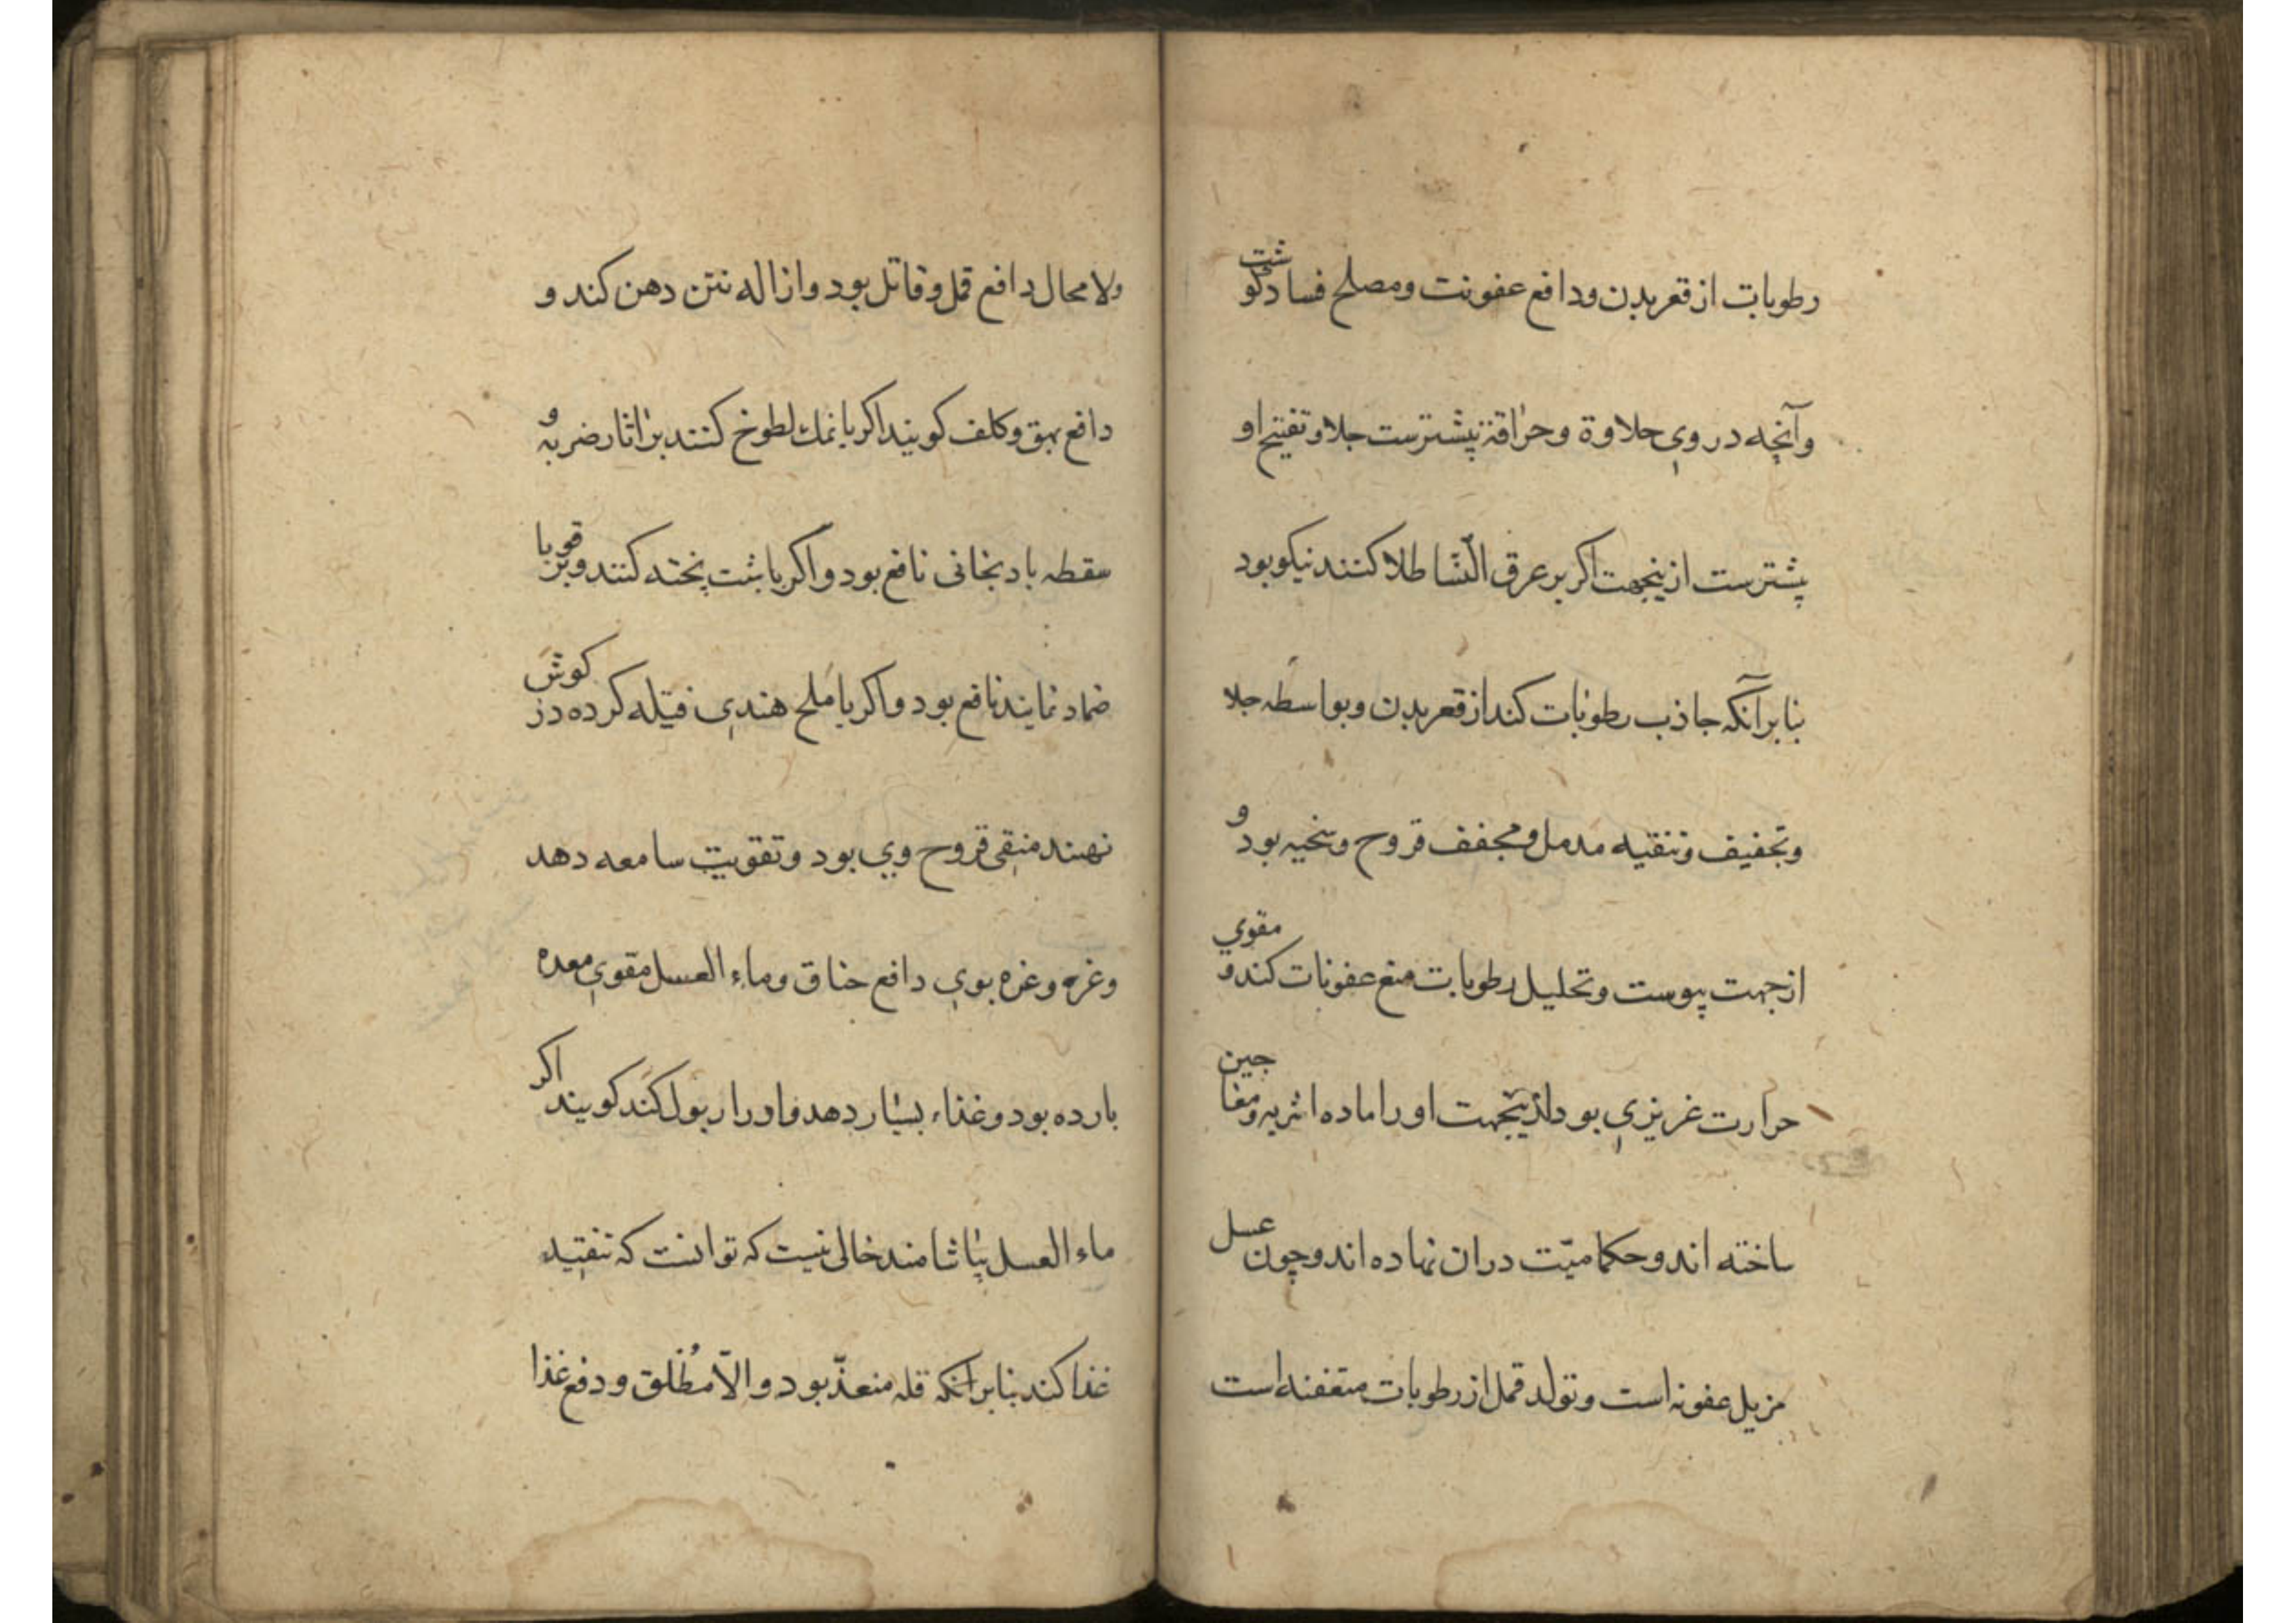 رطوبات از قعر بدن و دافع عفونت و مصلح فساد گوشت
و آنچه در وی حلاوة و حراقة پیشترست جلا و تفتیح او
پیشترست ازینجهت اکر بر عرق النّسا طلا کنند نیکو بود
بنا بر آنکه جاذب رطوبات کند از قعر بدن و بواسطه جلا
و تجفیف و تنقیه مدمل و مجفف قروح وسخیه بود و
از جهت یبوست و تحلیل رطوبات منع عفونات کند و مقوی
حرارت غریزی بود و ازینجهت او را ماده اشربه و معاجین
ساخته اند و حکما میّت دران نهاده اند و چون عسل
مزیل عفونه است و تولد قمل از رطوبات متعفنه است
ولا محال دافع قمل و قاتل بود و ازاله نتن دهن کند و
دافع بهق و کلف کویند اکر با نمک لطوخ کنند بر اثار ضربه و
سقطه بادنجانی نافع بود و اکر با شبت پخته کنند و بر قوبا
ضماد نمایند نافع بود و اکر با ملح هندی فتیله کرده در کوش
نهند منقی قروح وی بود و تقویت سامعه دهد
و غره و غره بوی دافع خناق و ماء العسل مقوی معده
بارده بود و غذاء بسیار دهد و ادرار بول کند کویند اکر
ماء العسل بیاشامند خالی نیست که توانست که تنفیذ
غذا کند بنا بر انکه قله منعذّ بود و الّا مُطلق و دفع غذا